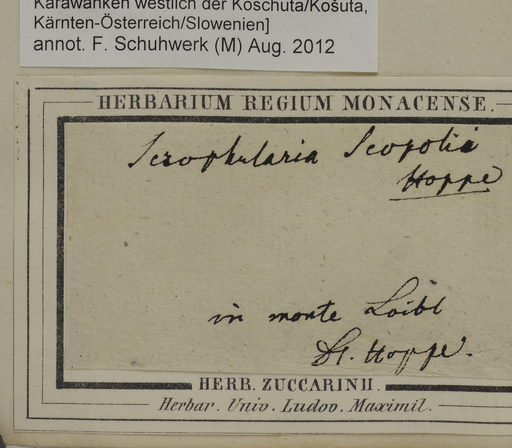 Karawanken westlich der Koschuta/Košuta,
Kärnten-Österreich/Slowenien]
annot. F. Schuhwerk (M) Aug. 2012
HERBARIUM REGIUM MONACENSE.
Scrophularia Scopolii
Hoppe
in monte Loibl
Dr. Hoppe.
HERB. ZUCCARINII.
Herbar. Univ. Ludov. Maximil.